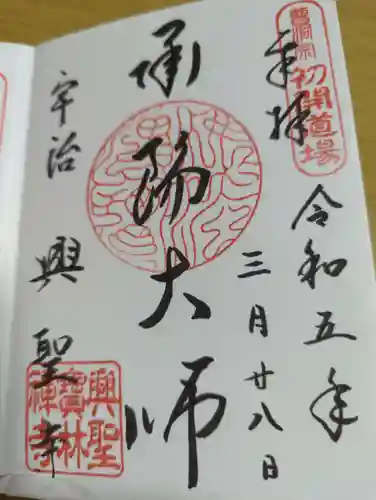 曹洞宗
初開道場
奉拝
令和五年
三月廿八日
承陽大師
宇治 興聖寺
興聖
寶林
禅寺